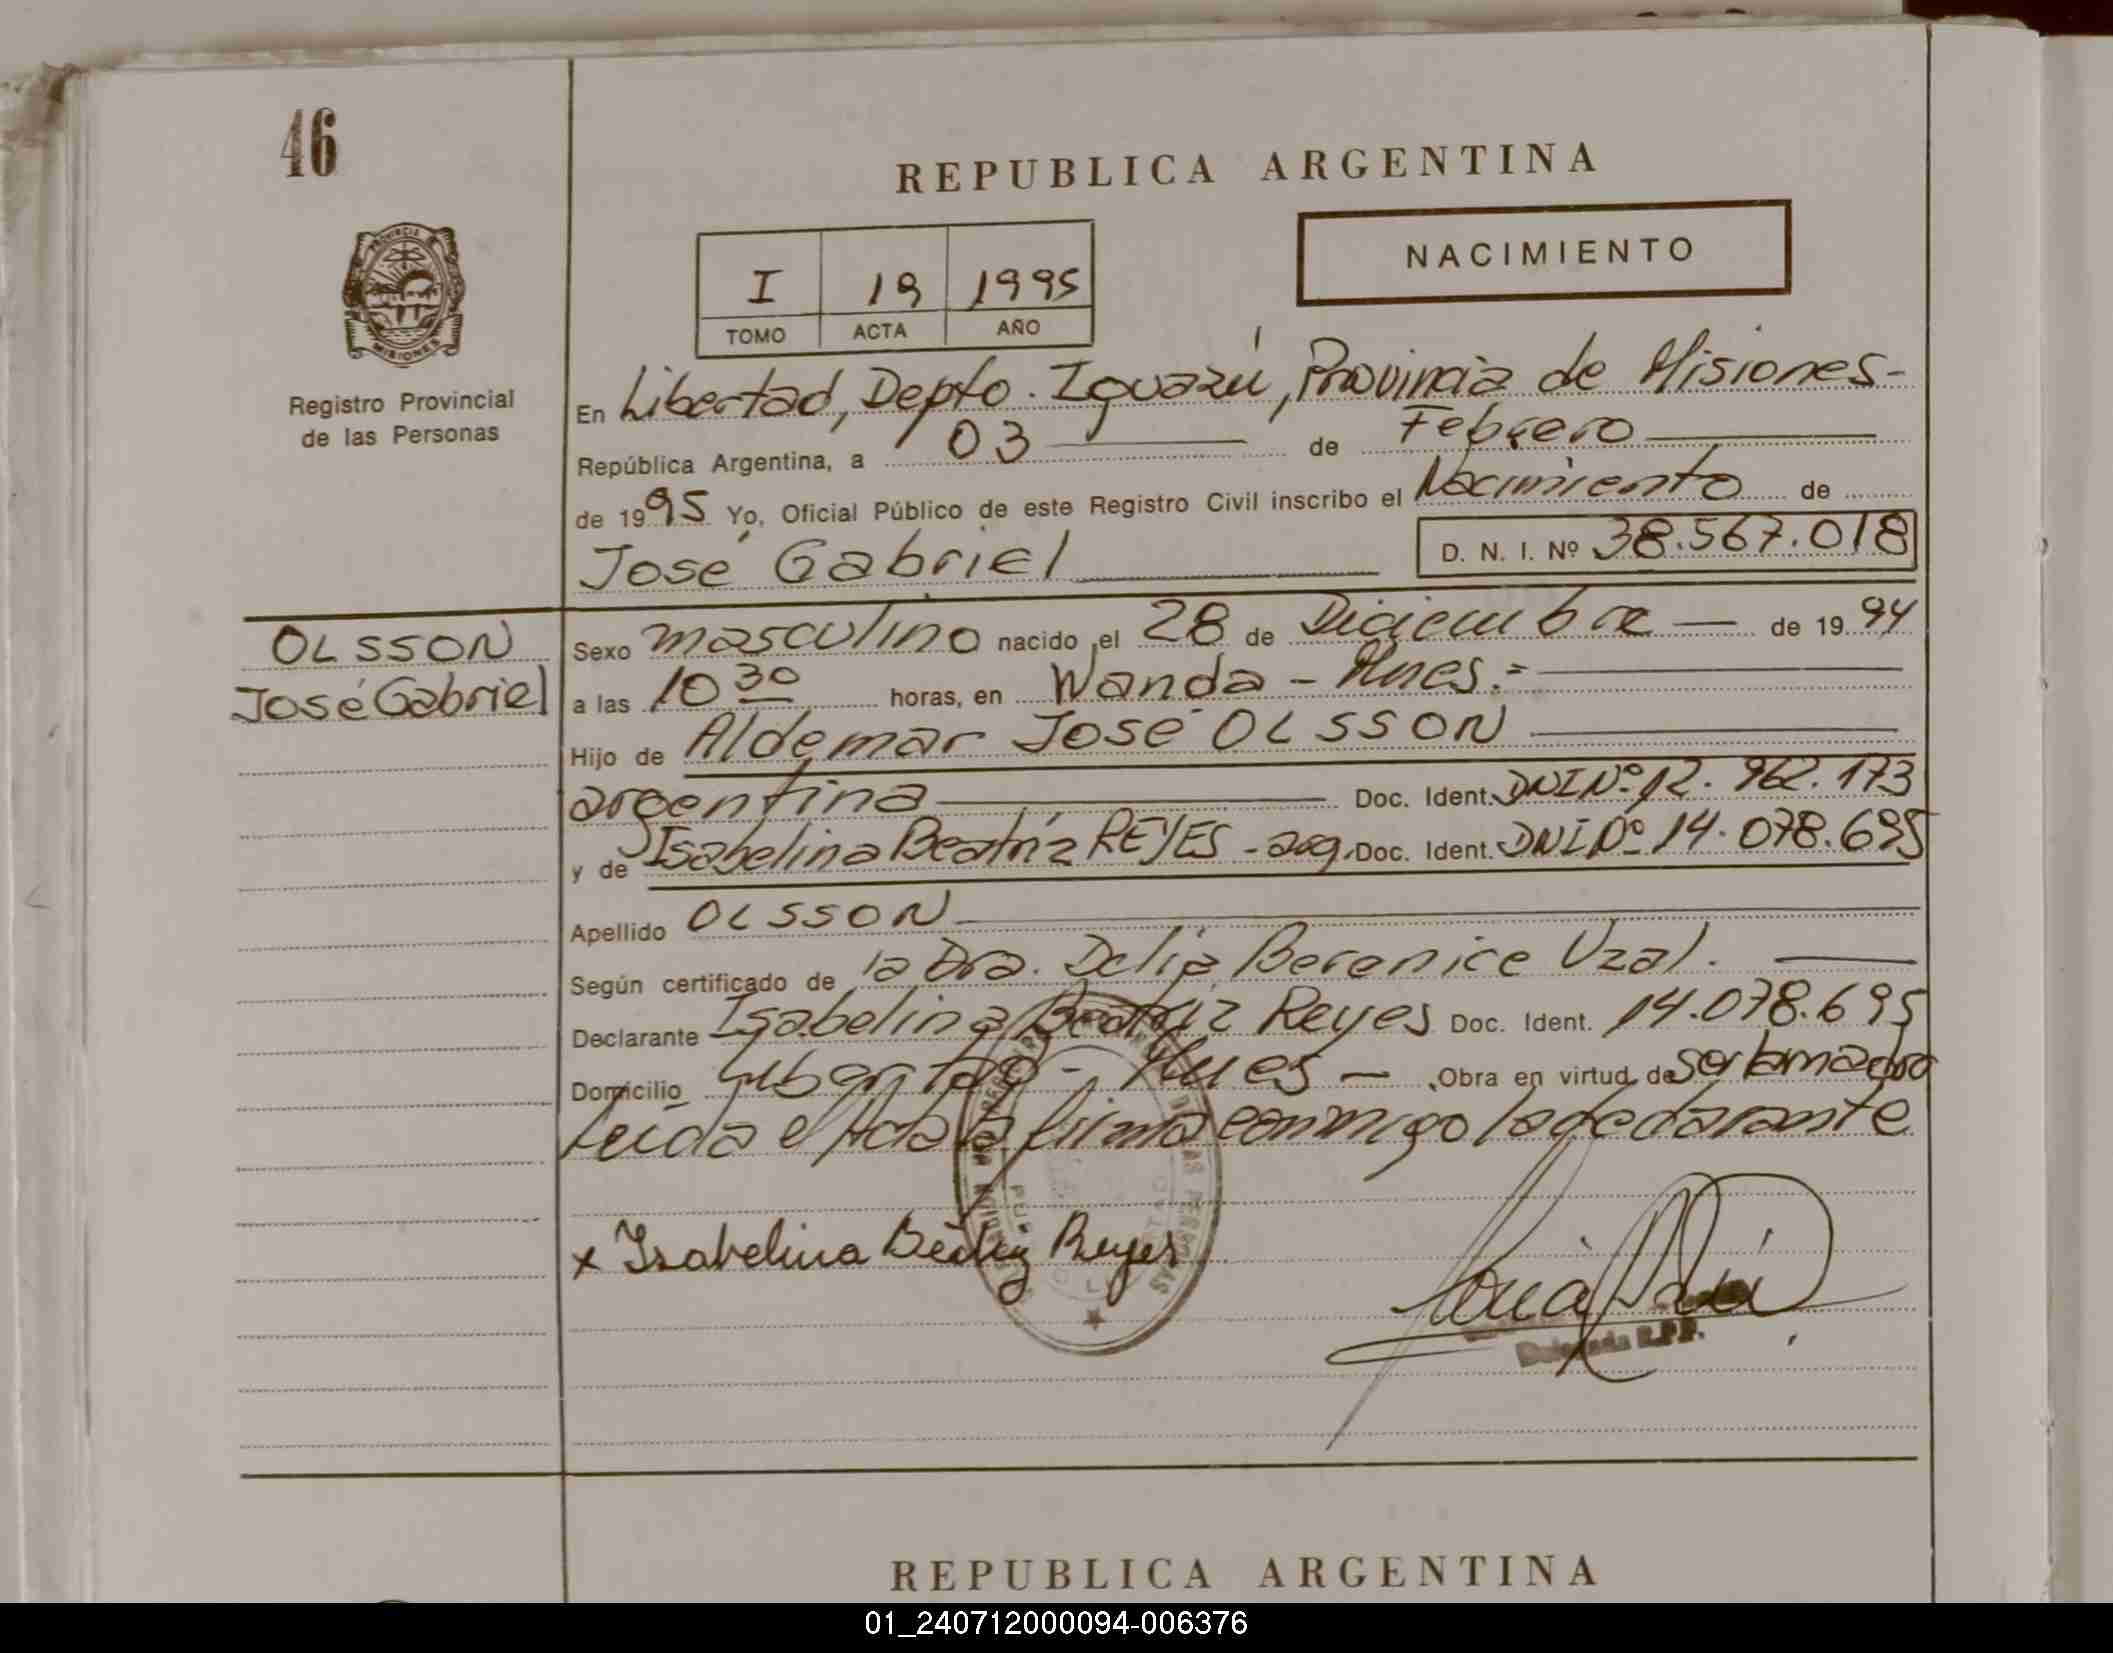 46
REPUBLICA ARGENTINA
NACIMIENTO
I 19 1995
TOMO ACTA AÑO
PROVINCIA
MISIONES
Registro Provincial
de las Personas
En Libertad, Depto. Iguazú, Provincia de Misiones-
República Argentina, a 03 de Febrero
de 1995 Yo, Oficial Público de este Registro Civil inscribo el Nacimiento de
José Gabriel D. N. I. Nº 38.567.018
OLSSON
José Gabriel
Sexo masculino nacido el 28 de Diciembre de 1994
a las 10 30 horas, en Wanda - Mnes.=
Hijo de Aldemar José OLSSON
argentina Doc. Ident. DNI Nº 12.962.173
y de Isabelina Beatríz REYES - arg. Doc. Ident. DNI Nº 14.078.695
Apellido OLSSON
Según certificado de la Dra. Delia Berenice Uzal.
Declarante Isabelina Beatriz Reyes Doc. Ident. 14.078.695
Domicilio Libertad - Mnes - Obra en virtud de ser la madre
Leída el Acta la firma conmigo la declarante
x Isabelina Beatriz Reyes
Delegada R.P.P.
REPUBLICA ARGENTINA
01_240712000094-006376